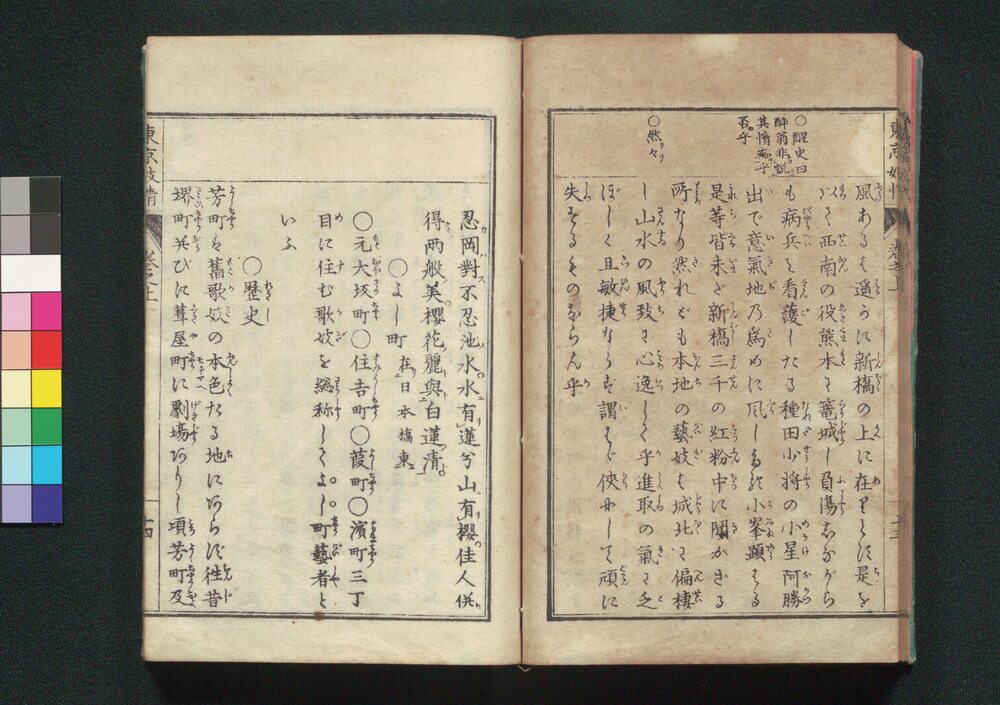 ○醒史曰
醉翁非説
其情痴乎
否乎
○然々
風あるを遥かに新橋の上に在りとす是を
以て西南の役熊本に篭城し負傷しながら
も病兵を看護したる種田少将の小星阿勝
出で意氣地の為めに死しる於小峯顕はる
是等皆未だ新橋三千の紅粉中に聞かざる
所なり然れども本地の藝妓は城北に偏棲
し山水の風致に心逸しく乎進取の氣に乏
ぼしく且敏捷ならず謂はゞ侠にして頑に
失するものならん乎
東京妓情
巻之上
十三
忍岡對不忍池水水有蓮兮山有櫻佳人併
得兩般美櫻花麗與白蓮清
○よし町 在日本橋東
○元大坂町○住吉町○葭町○濱町三丁
目に住む歌妓を総称してよし町藝者と
いふ
○歴史
芳町は舊歌妓の本色たる地にあらず徃昔
堺町并びに葺屋町に劇場ありし頃芳町及
東京妓情
巻之上
十四